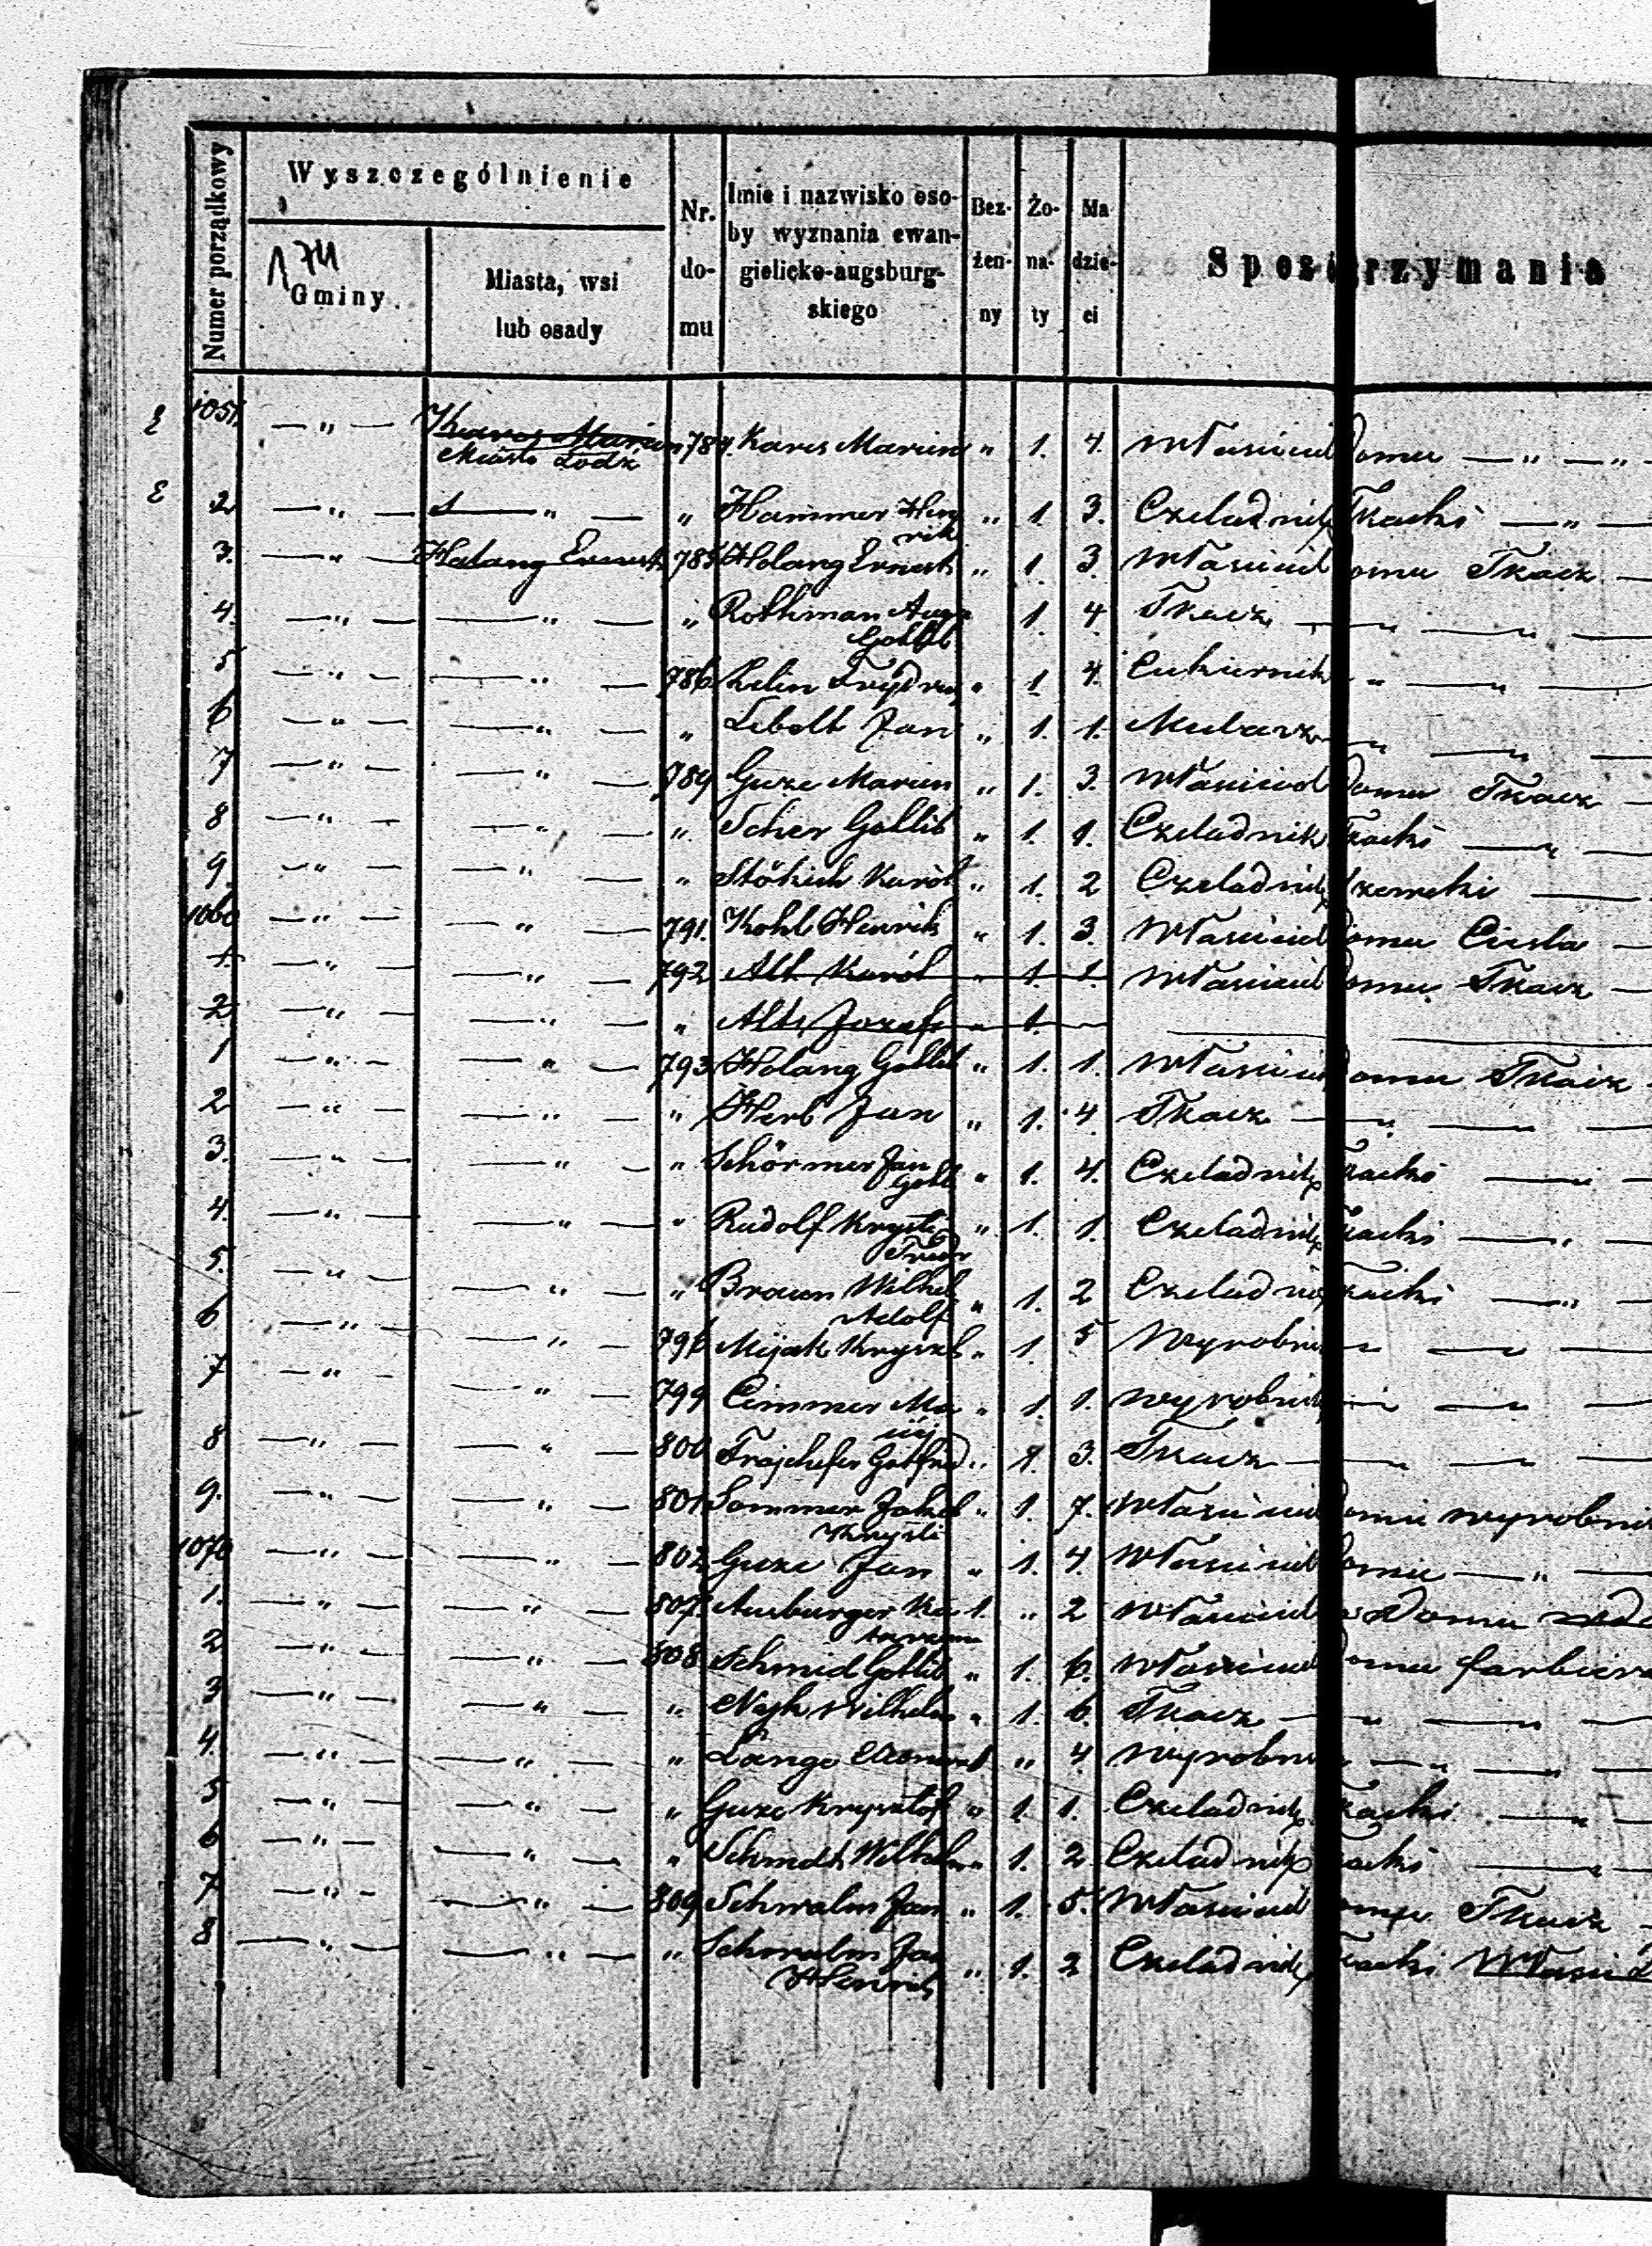 Numer porządkowy
Wyszczególnienie
174
Gminy.
Miasta, wsi
lub osady
Nr.
do-
mu
Imie i nazwisko oso-
by wyznania ewan-
gielicko-augsburg-
skiego
Bez-
żen-
ny
Żo-
na-
ty
Ma
dzie-
ci
Sposó rzymania
1051. — " — Karos Marian
Miasto Łodź 784. Kares Marian " 1. 4. Właściciel Domu — " — "
2 — " — — " — " Hammer Hen
rik " 1. 3. Czeladnik Tkacki — " —
3. — " — Halang Ernest 785 Holang Ernest " 1. 3. Właściciel omu Tkacz —
4. — " — — " — " Rothman Aug
Gottlib 1. 4. Tkacz — " — " —
5 — " — — " — 786 Frydry " 1 4. Cukiernik " — " —
6 — " — — " — " Libelt Jan " 1. 1. Mularz — " — " —
7 — " — — " — 789 Guze Marcin " 1. 3. Właściciel Domu Tkacz —
8 — " — — " — " Scher Gottlib " 1. 1. Czeladnik Tkacki — " —
9. — " — — " — " Karól " 1. 2 Czeladnik szewcki —
1060 — " — — " — 791. Kohl Henrik " 1. 3. Właściciel omu Ciesla —
1. — " — — " — 792 Alt Karól " 1. 1. Właściciel omu Tkacz —
2 — " — — " — " Alt Jozef " 1. —
1 — " — — " — 793 Holang Gottlib " 1. 1. Właściciel Domu Tkacz
2 — " — — " — " Herb Jan " 1. 4. Tkacz — " — " —
3. — " — — " — " Schörmer Jan
Gotl " 1. 4. Czeladnik Tkacki — " —
4. — " — — " — " Rudolf Krysti
Fredr " 1. 1. Czeladnik Tkacki — " —
5. — " — — " — " Braun Wilhel
Adolf " 1. 2 Czeladnik Tkacki — " —
6 — " — — " — 796 Mijak Kryszt " 1. 5 Wyrobnik — " —
7 — " — — " — 799 Cimmer Ma
ciej " 1. 1. wyrobnik — " —
8 — " — — " — 800 Gotfrid " 1. 3. Tkacz — " — " —
9. — " — — " — 801 Sommer Jakob
Krysti " 1. 7. Właściciel omu wyrobni
1070 — " — — " — 802 Guze Jan " 1. 4. Właściciel omu — " —
1. — " — — " — 807 Ausburger Ka
tarzyna 1. " 2 Właściciel Domu
2 — " — — " — 808 Schmid Gottlib " 1. 6. Właściciel omu farbierz
3 — " — — " — " Wilhelm " 1. 6. Tkacz — " — " —
4. — " — — " — " Lange 1 " 4 wyrobni — " —
5 — " — — " — " Guze Krysztof " 1. 1. Czeladnik Tkacki — " —
6 — " — — " — " Schmidt Wilhelm " 1. 2 Czeladnik Tkacki — " —
7 — " — — " — 809 Schwalm Jan " 1. 5. Właściciel omu Tkacz —
8 — " — — " — " Schwalm Jan
Henrik " 1. 2 Czeladnik Tkacki Właścici